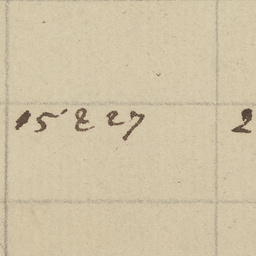 15 2 27 2